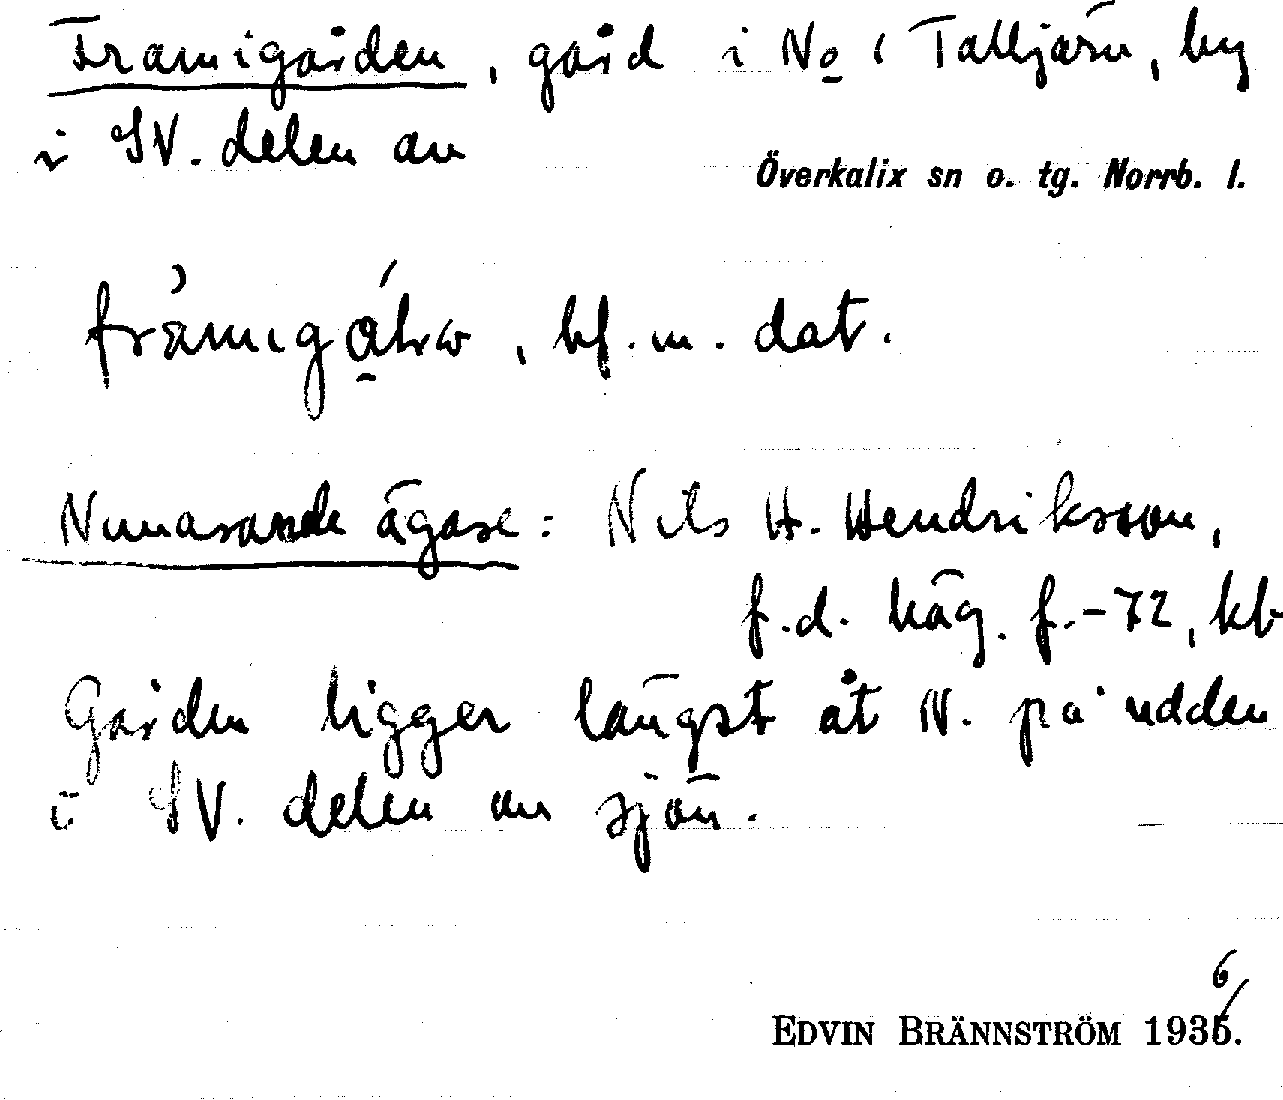 Framigården, gård i No 1 Talljärv, by
i SV. delen av
Överkalix sn o. tg. Norrb. l.
bf. m. dat.
Nuvarande ägare: Nils H. Hendriksson,
f.d. häg. f. -72, kb
Gården ligger längst åt N. på udden
i SV. delen av sjön.
6
EDVIN BRÄNNSTRÖM 1935.